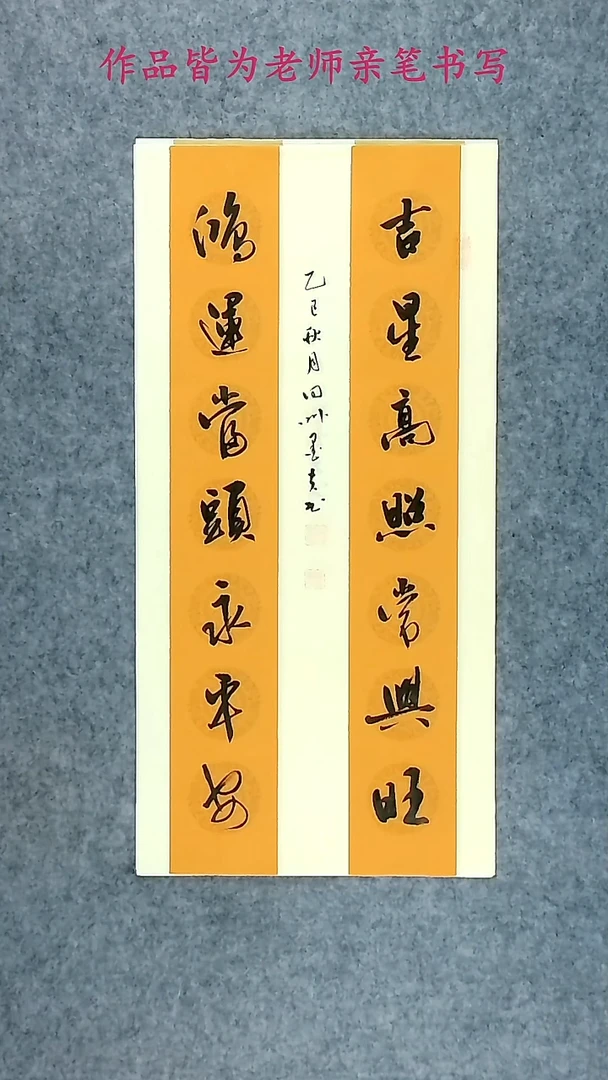 作品皆为老师亲笔书写
吉星高照常興旺
鴻運當頭永平安
乙巳秋月